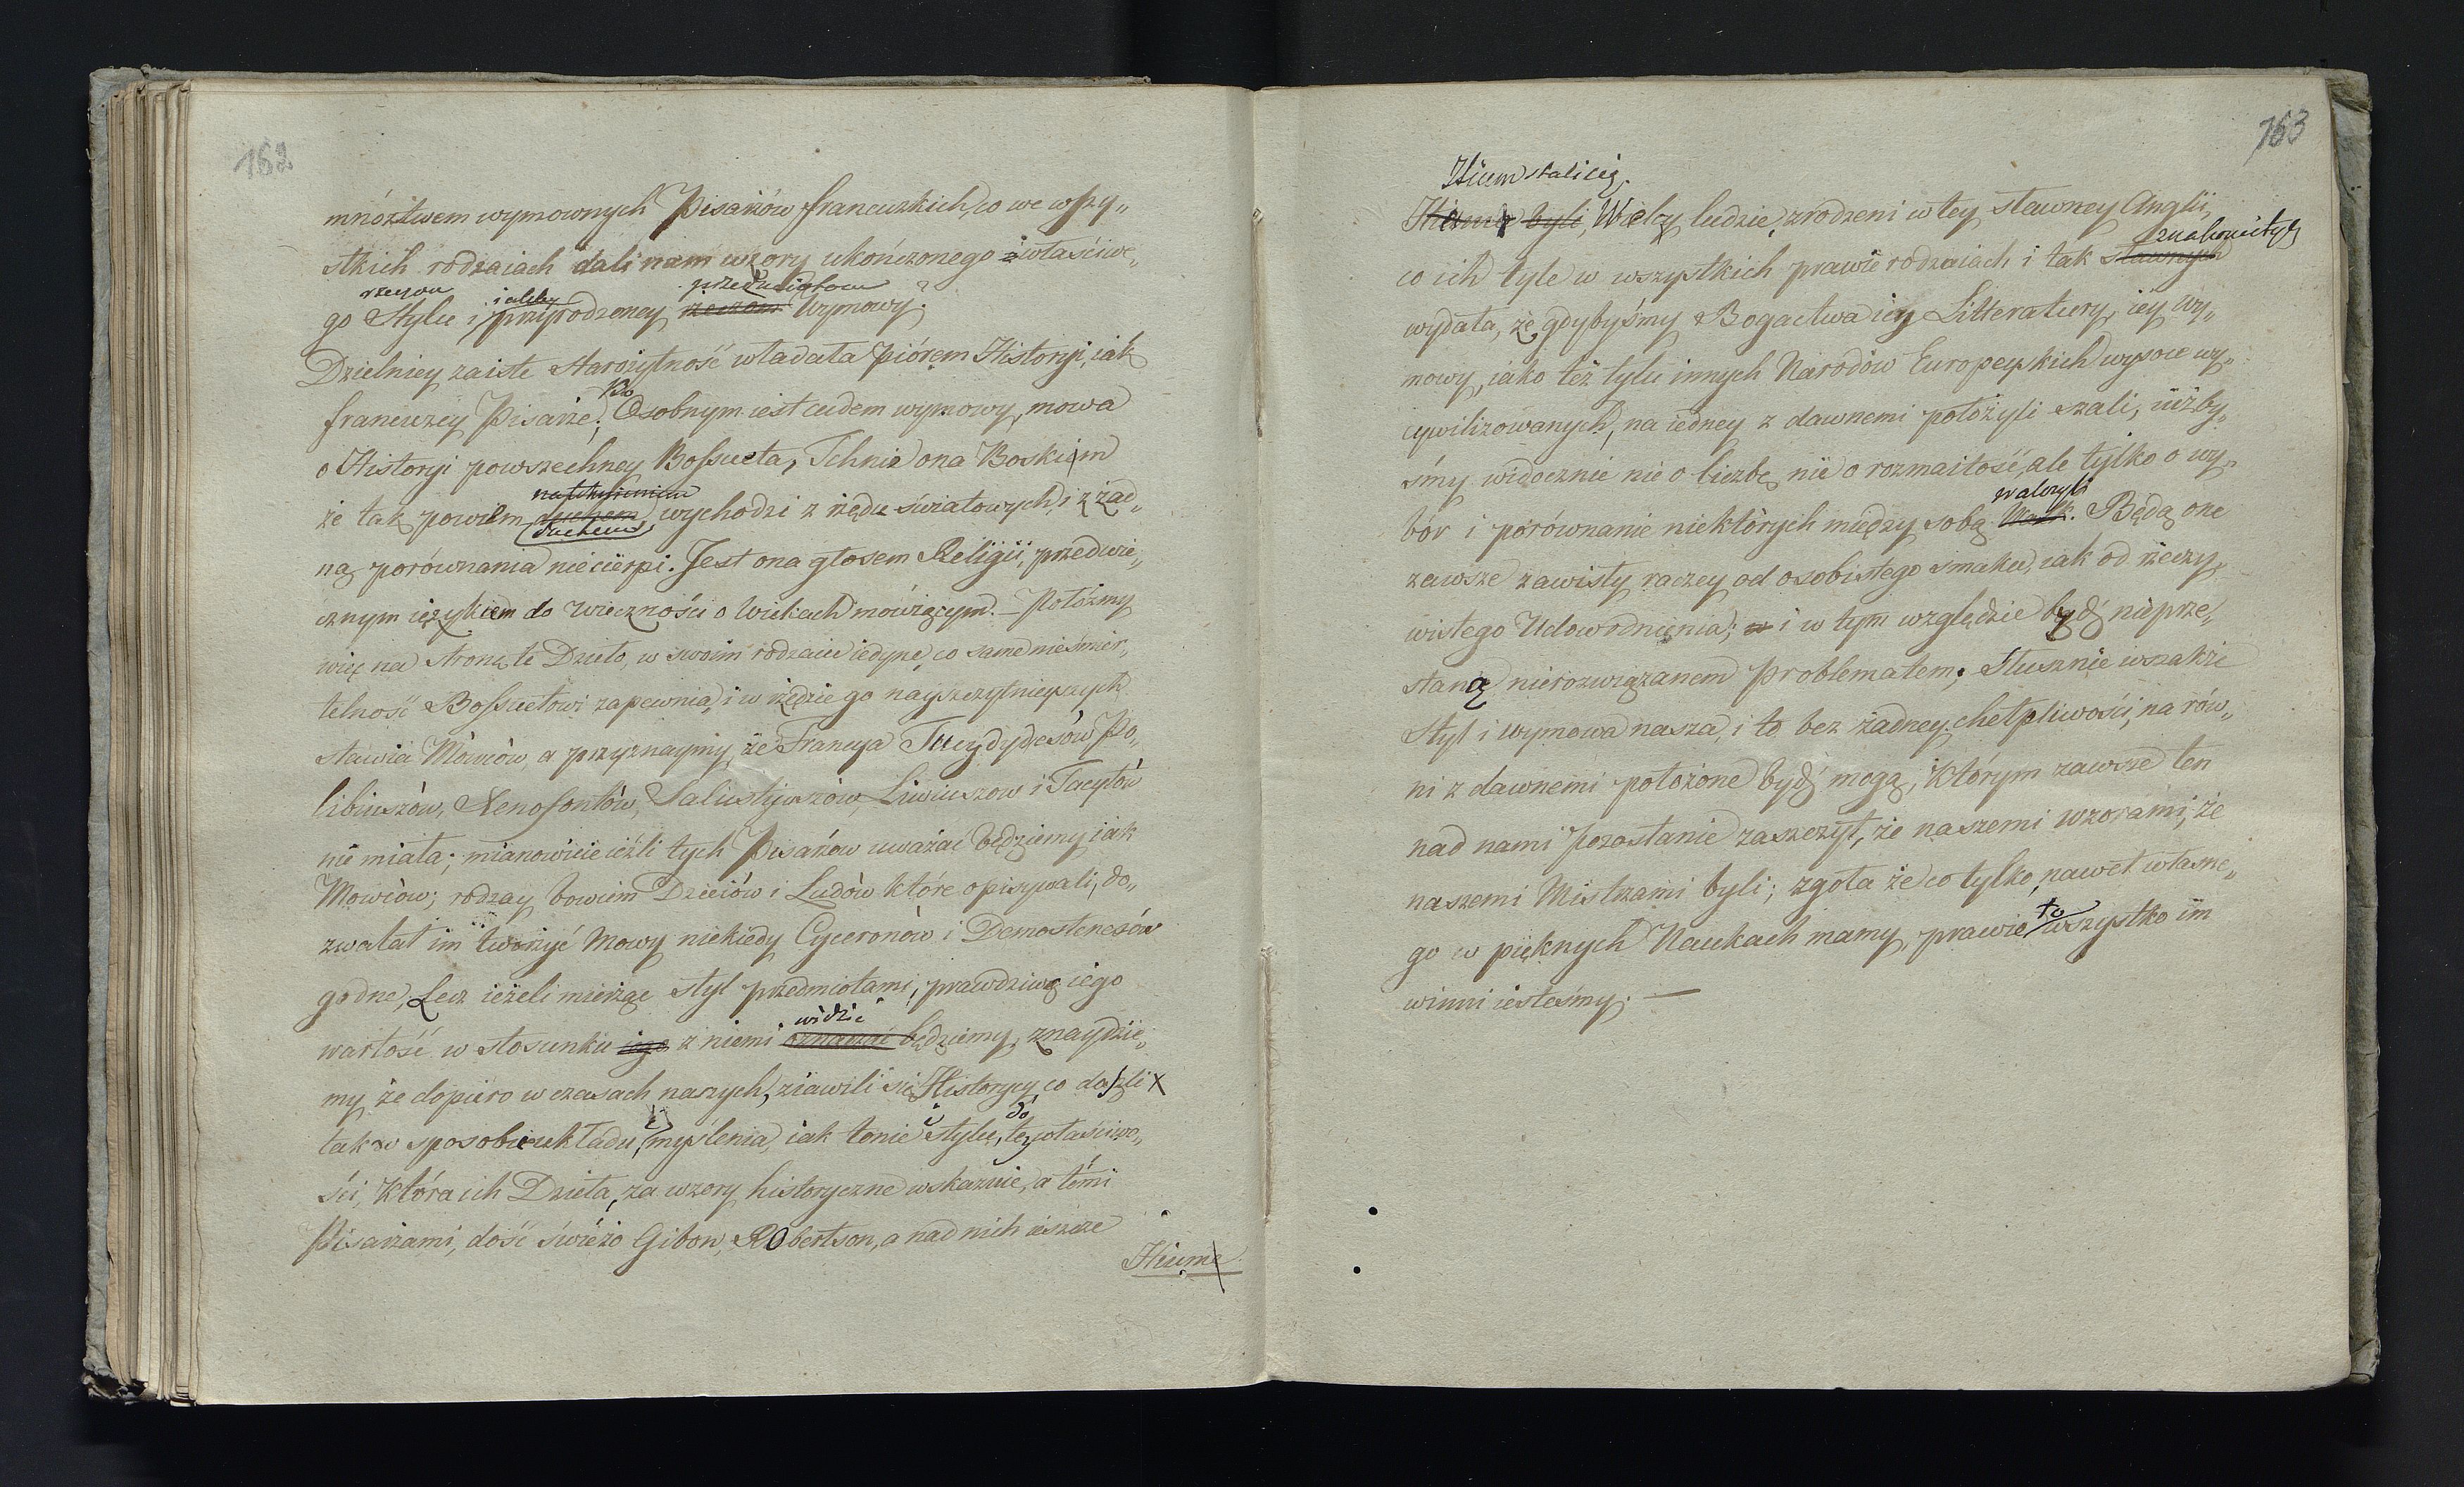 162
mnóztwem wymownych Pisarzów francuzkich, co we wszy„
stkich rodzaiach dali nam wzory ukończonego i właściwe„
rzeczom iakby przedmiotom
go Stylu i przyrodzoney rzeczom Wymowy.
Dzielniey zaiste Starożytność władała piórem Historyi, iak
Bo
francuzcy Pisarze; Osobnym iest cudem wymowy, mowa
o Historyi powszechney Bossueta, Tchnie ona Boskim
natchnieniem
że tak powiem duchem wychodzi z rzędu światowych, i z żad„
duchem
ną porównania niecierpi. Jest ona głosem Religii, przedwie„
cznym ięzykiem do wieczności o Wiekach mówiącym. – Połóżmy
więc na stronę te Dzieło, w swoim rodzaiu iedyne, co same nieśmier„
telność Bossuetowi zapewnia, i w rzędzie go nayszczytnieyszych
stawia Mówców, a przyznaymy, że Francya Tucydydesów, Po„
libiuszów, Xenofontów, Salustyuszów, Liwiuszow i Tacytów
nie miała; mianowicie ieźli tych Pisarzów uważać będziemy iak
Mowców; rodzay bowiem Dzieiów i Ludów które opisywali, do„
zwalał im tworzyć Mowy niekiedy Cyceronów i Demostenesów
godne, Lecz ieżeli mierząc styl przedmiotami, prawdziwą iego
widzieć
wartość w stosunku iego z niemi oznaczać będziemy, znaydzie„
my że dopiero w czasach naszych, ziawili się Historycy co doszli
i i do
tak w sposobie układu, myślenia, iak tonie stylu, tey właściwo„
ści, która ich Dzieła, za wzory historyczne wskazuie, a témi
Pisarzami, dość świeżo Gibon, Robertson, a nad nich ieszcze
Hiume
163
Hium stali się.
Hiume byli, Wielcy ludzie, zrodzeni w tey sławney Anglii,
znakomitych
co ich tyle w wszystkich prawie rodzaiach i tak sławnych
wydała, że gdybyśmy Bogactwa iey Litteratury, iéy wy„
mowy, iako też tylu innych Narodów Europeyskich wysoce wy„
cywilizowanych, na iedney z dawnemi położyli szali, iużby„
śmy widocznie nie o liczbę, nie o rozmaitość, ale tylko o wy„
walczyli
bór i porównanie niektórych między sobą Walk. Będą one
zawsze zawisły raczey od osobistego smaku, iak od rzeczy„
wistego Udowodnienia; i w tym względzie bydź nieprze„
staną nierozwiązanem Problematem; Słusznie wszakże
Styl i wymowa nasza, i to bez żadney chełpliwości, na rów„
ni z dawnemi położone bydź mogą, Którym zawsze ten
nad nami pozostanie zaszczyt, że naszemi wzorami, że
naszemi Mistrzami byli; zgoła że co tylko, nawet własne„
to
go w pięknych Naukach mamy, prawie wszystko im
winni iesteśmy. —